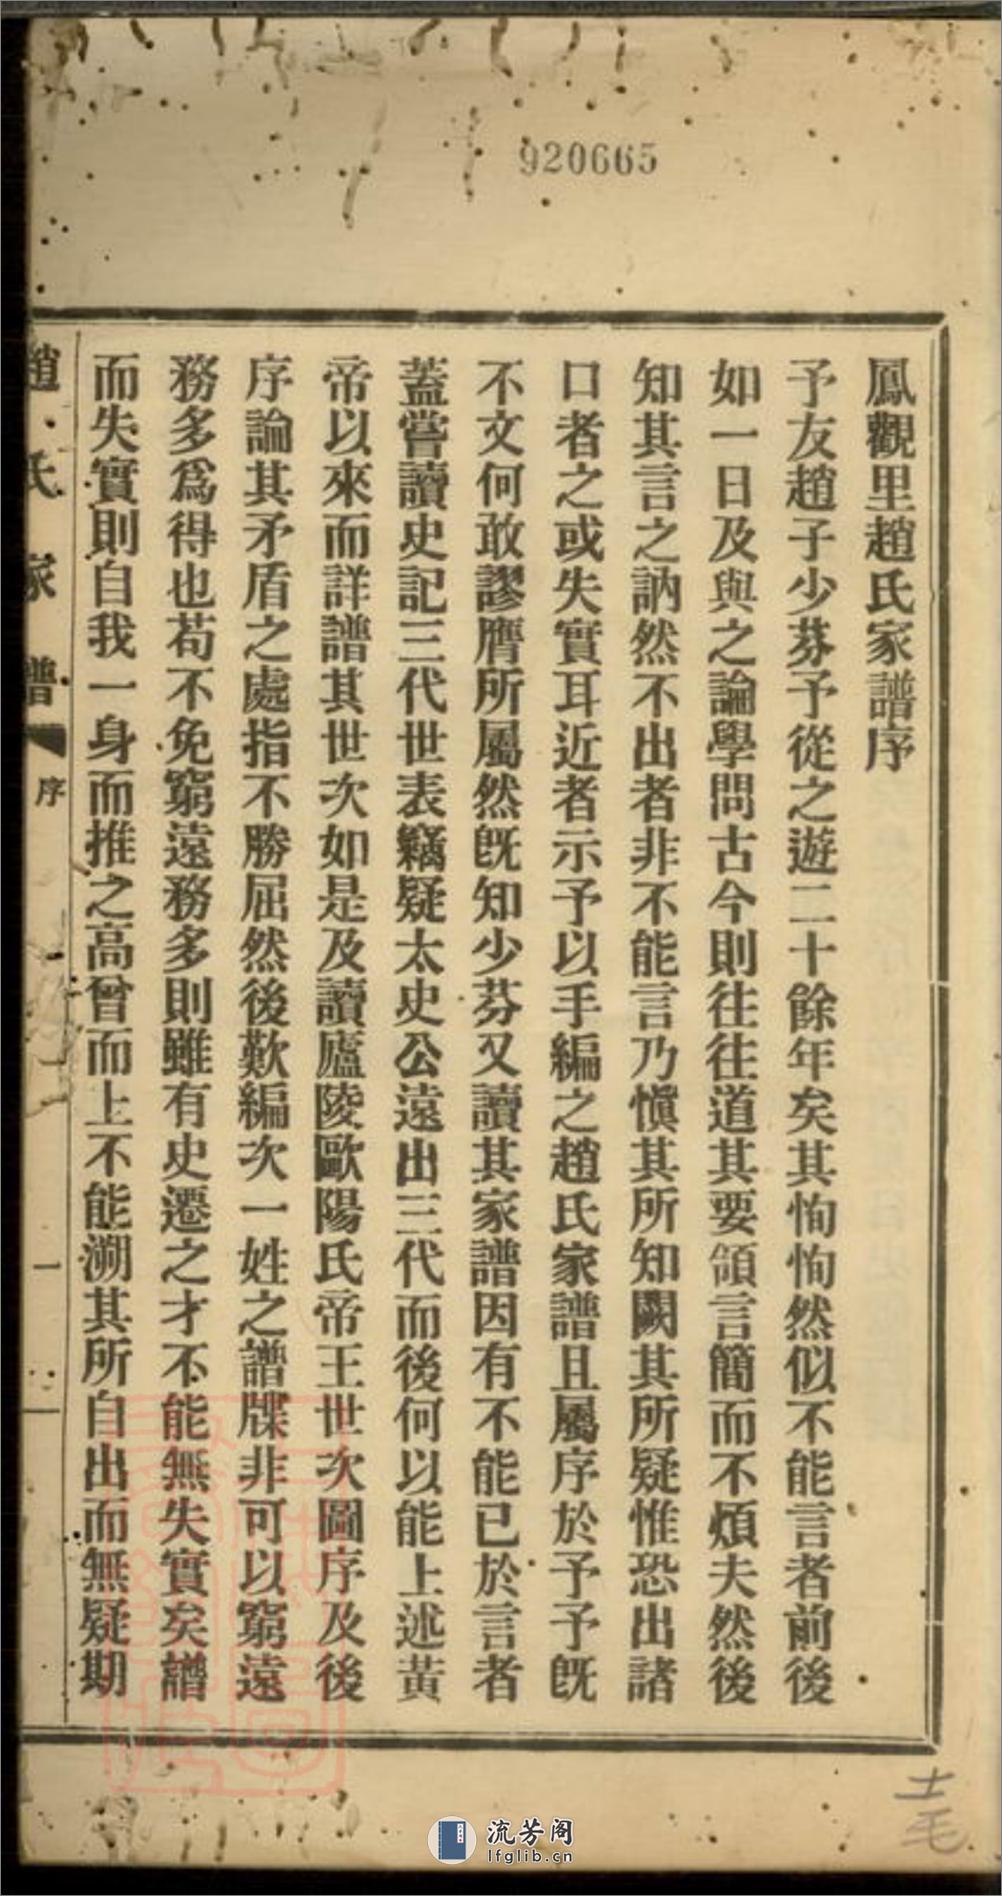 920665
鳳觀里趙氏家譜序
予友趙子少芬予從之遊二十餘年矣其恂恂然似不能言者前後
如一日及與之論學問古今則往往道其要領言簡而不煩夫然後
知其言之訥然不出者非不能言乃愼其所知闕其所疑惟恐出諸
口者之或失實耳近者示予以手編之趙氏家譜且屬序於予予旣
不文何敢謬膺所屬然旣知少芬又讀其家譜因有不能已於言者
蓋嘗讀史記三代世表竊疑太史公遠出三代而後何以能上述黃
帝以來而詳譜其世次如是及讀廬陵歐陽氏帝王世次圖序及後
序論其矛盾之處指不勝屈然後歎編次一姓之譜牒非可以窮遠
務多爲得也苟不免窮遠務多則雖有史遷之才不能無失實矣譜
而失實則自我一身而推之高曾而上不能溯其所自出而無疑期
趙氏家譜
序
一
流芳阁
lfglib.cn